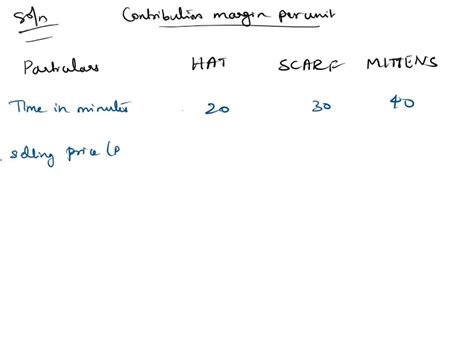 Soln Contribution margin per unit
Particulars HAT SCARF MITTENS
Time in minutes 20 30 40
Selling price (p